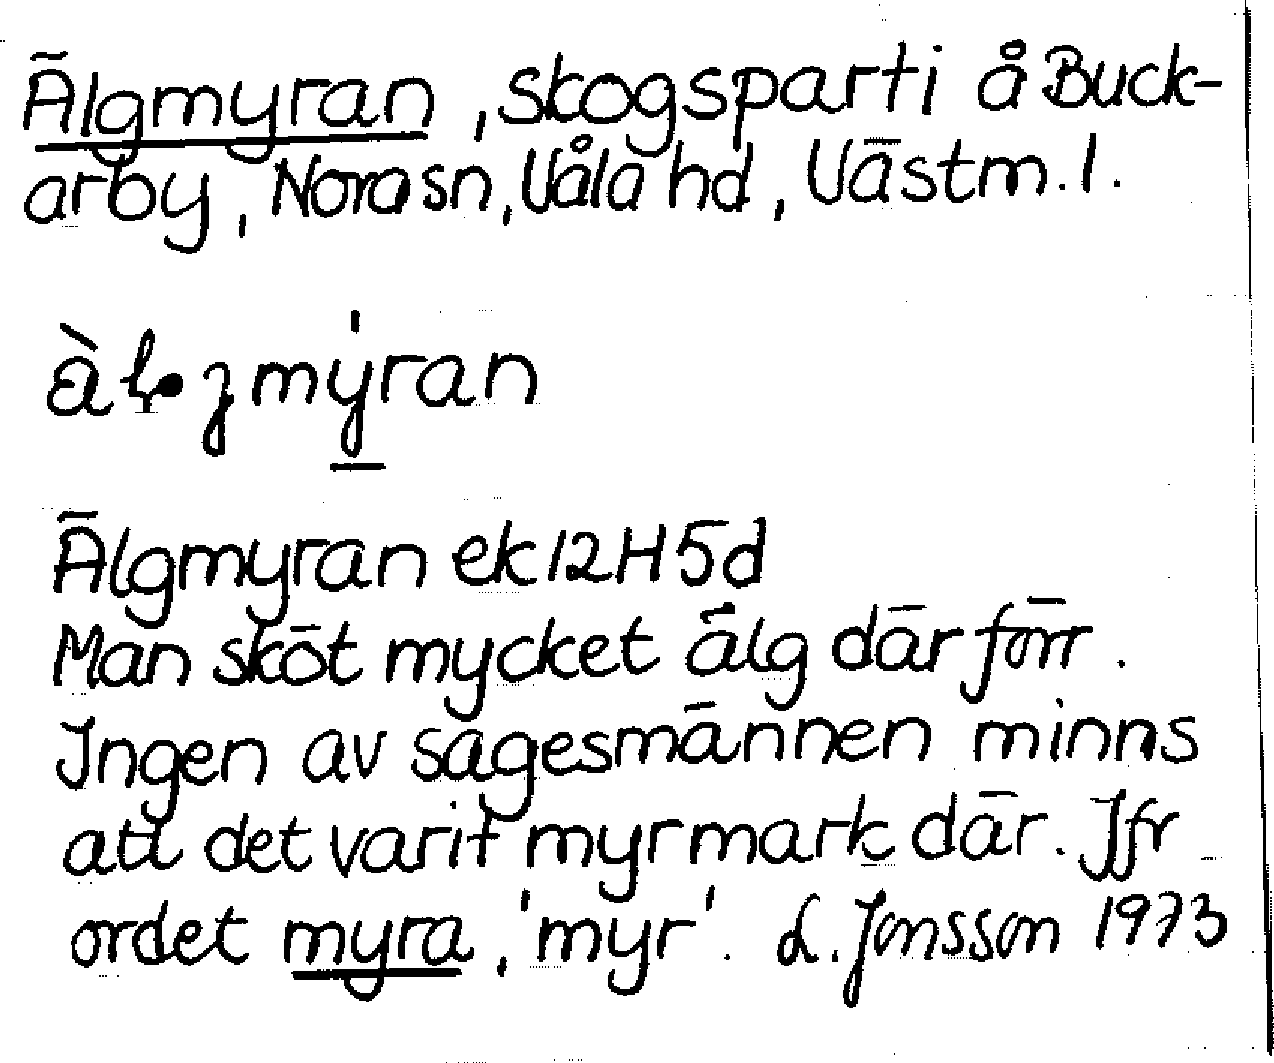 Älgmyran, skogsparti å Buck-
arby, Nora sn, Våla hd, Västm. l.
Älgmyran ek 12H5d
Man sköt mycket älg där förr.
Ingen av sagesmännen minns
att det varit myrmark där. Jfr
ordet myra, 'myr'. L. Jonsson 1973